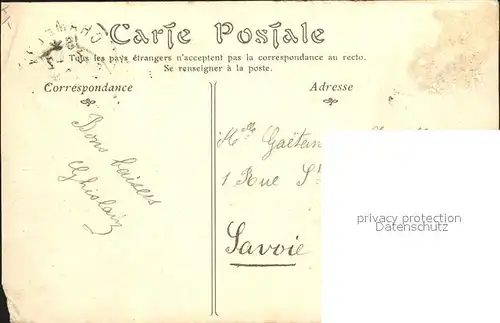 Carte Postale
Tous les pays étrangers n'acceptent pas la correspondance au recto.
Se renseigner à la poste.
Correspondance
Adresse
Bons baisers
Ghislain
Melle Gaëtan
1 Rue St
Savoie
privacy protection
datenschutz